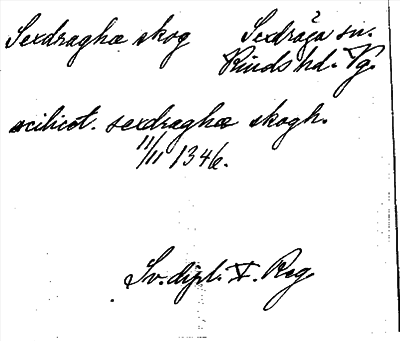 Sexdraghæ skog
Sexdråga sn.
Kinds hd. Vg.
scilicet. sexdraghæ skogh.
11/11 1346.
Sv. dipl. V. Reg.